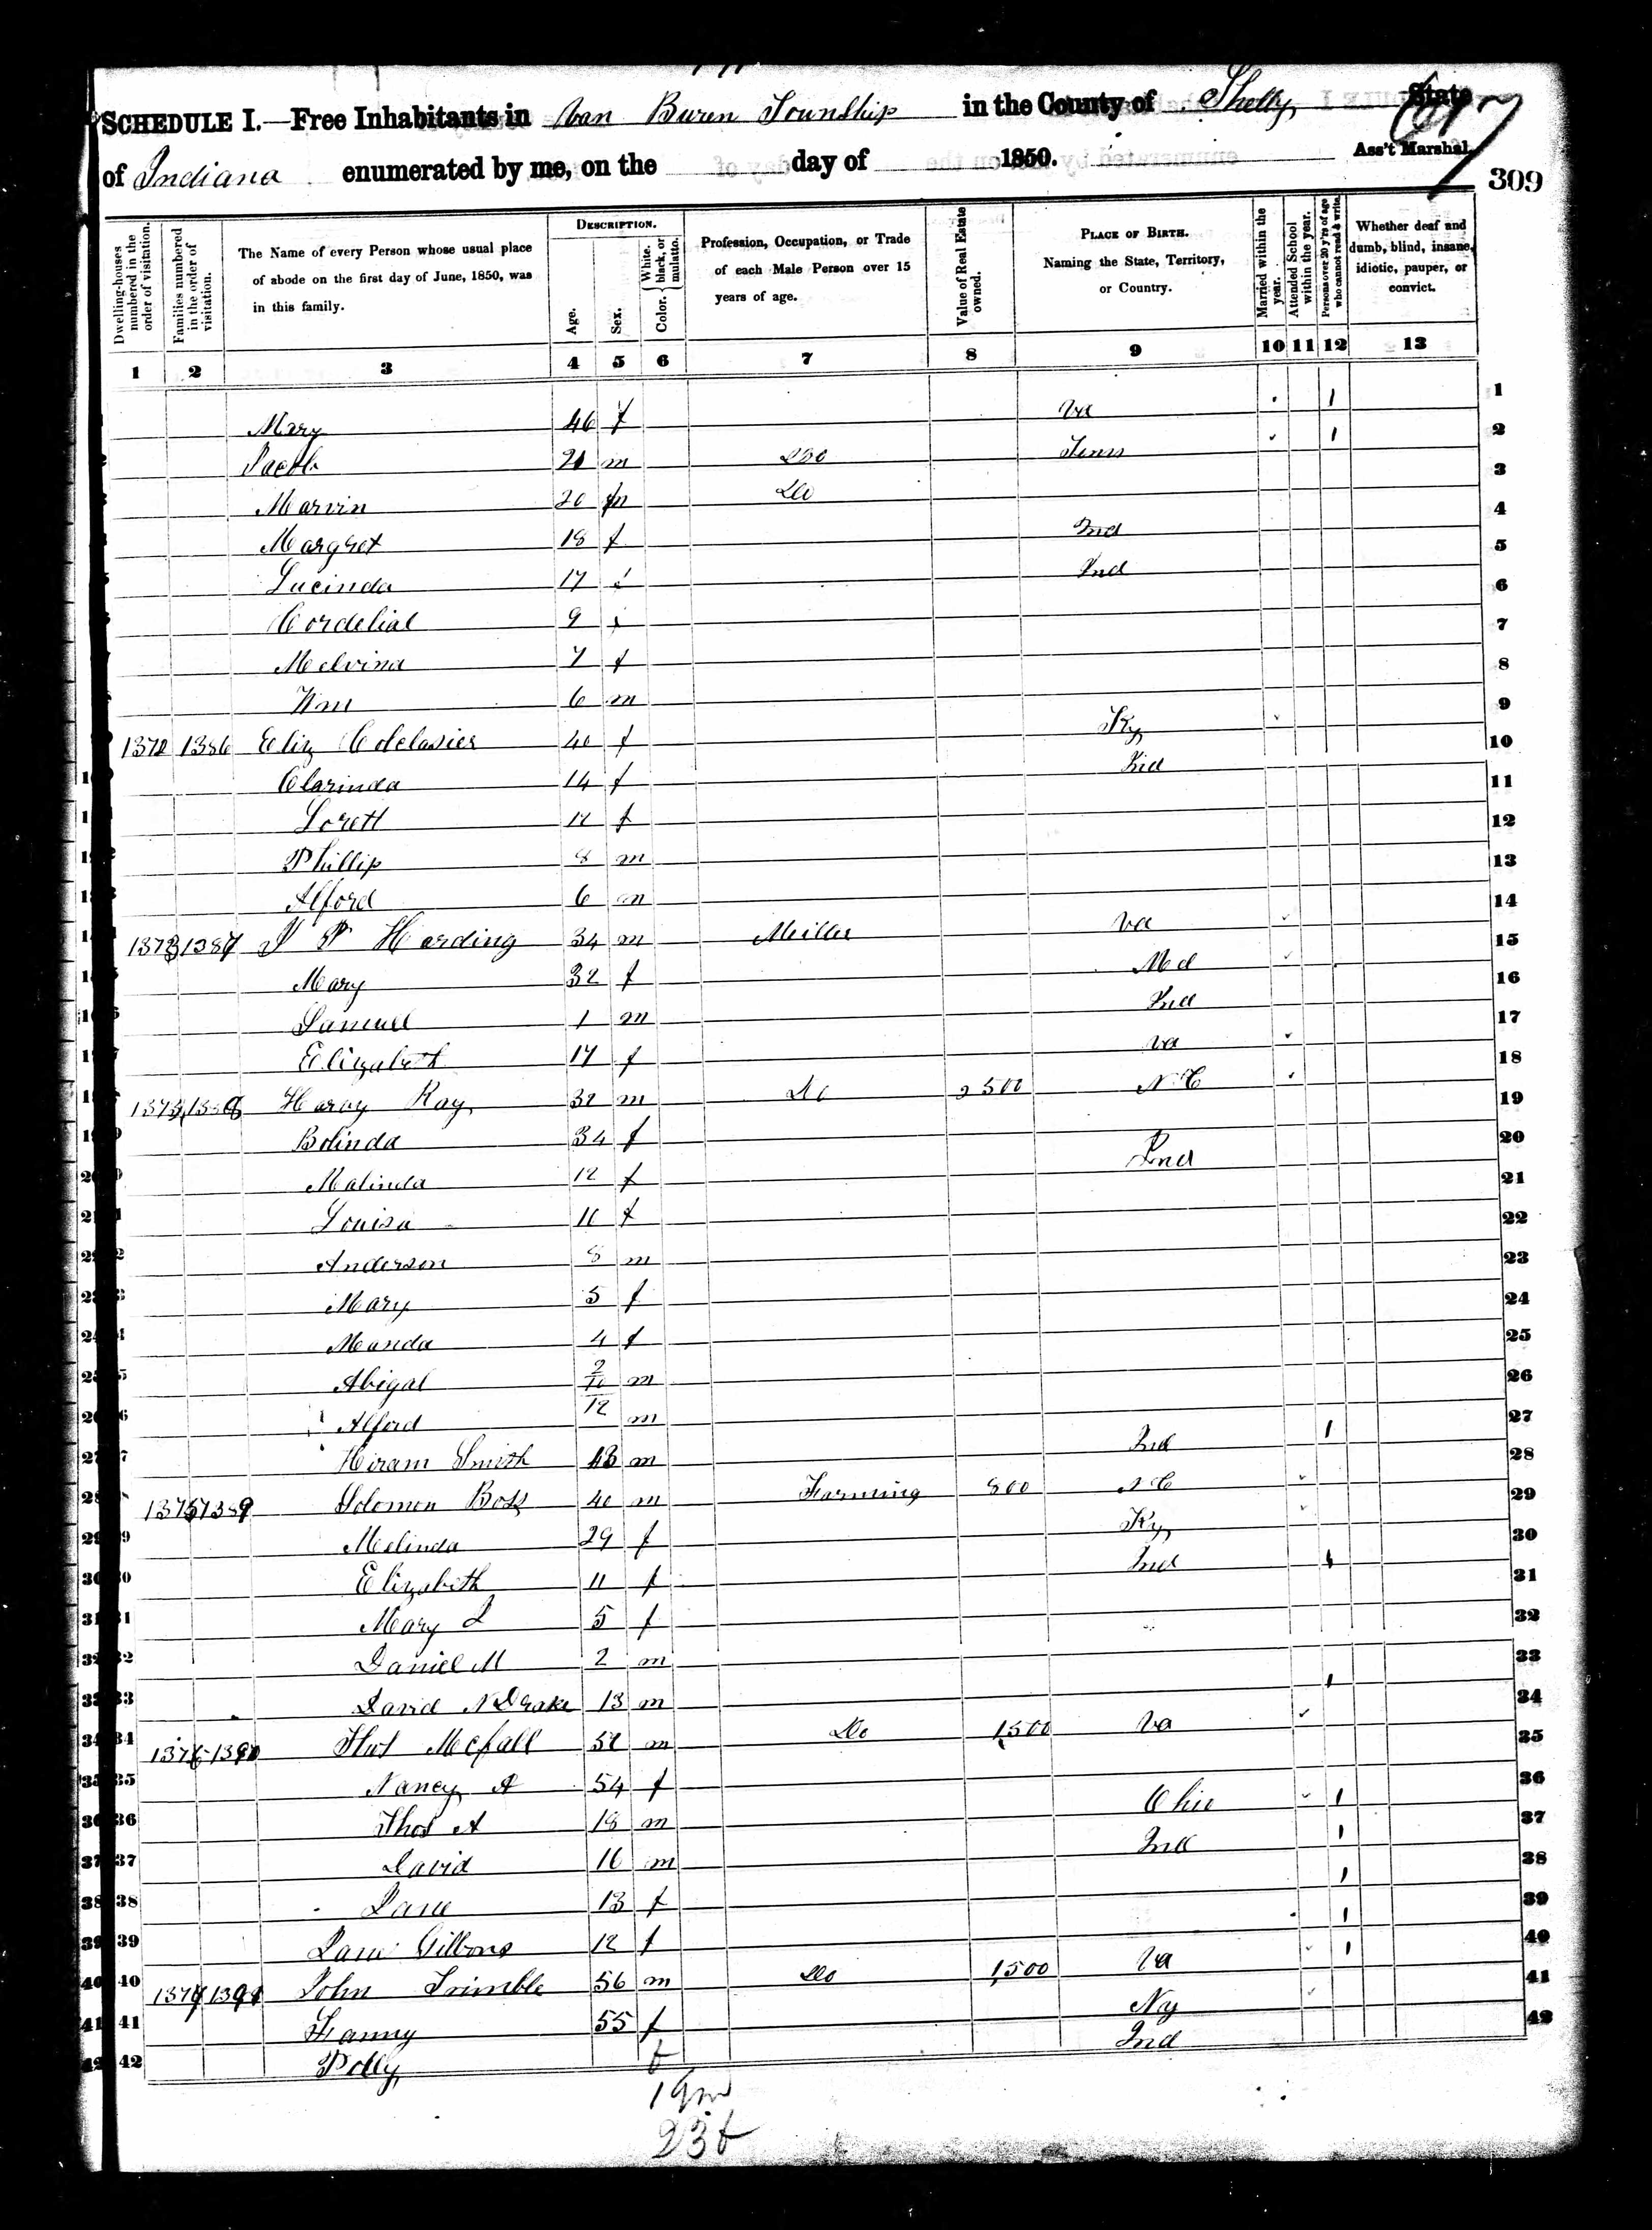 SCHEDULE I.—Free Inhabitants in Van Buren Township in the County of Shelby State
of Indiana enumerated by me, on the day of 1850. Ass't Marshal.
309
Dwelling-houses numbered in the order of visitation.
Families numbered in the order of visitation.
The Name of every Person whose usual place of abode on the first day of June, 1850, was in this family.
DESCRIPTION.
Age.
Sex.
Color. { White, black, or mulatto.
Profession, Occupation, or Trade of each Male Person over 15 years of age.
Value of Real Estate owned.
PLACE OF BIRTH.
Naming the State, Territory, or Country.
Married within the year.
Attended School within the year.
Persons over 20 y'rs of age who cannot read & write.
Whether deaf and dumb, blind, insane, idiotic, pauper, or convict.
1 2 3 4 5 6 7 8 9 10 11 12 13
1 Mary 46 f Va 1
2 Jacob 21 m Do Tenn 1
3 Marvin 20 m Do
4 Margret 18 f Ind
5 Lucinda 17 f Ind
6 Cordelial 9
7 Melvina 7 f
8 Wm 6 m
9 1372 1386 Eliz 40 f Ky
10 Clarinda 14 f Ind
11 Lorett 12 f
12 Phillip 8 m
13 Alford 6 m
14 1373 1387 J P Harding 34 m Miller Va
15 Mary 32 f Md
16 Samuel 1 m Ind
17 Elizabeth 17 f Va
18 1374 1388 Harvy Ray 32 m Do 2500 N C
19 Bolinda 34 f
20 Malinda 12 f Ind
21 Louisa 10 f
22 Anderson 8 m
23 Mary 5 f
24 Manda 4 f
25 Abigal 2 m
26 Alford 10/12 m
27 Hiram Smith m Ind 1
28 1375 1389 Solomon 40 m Farming 800 N C
29 Melinda 29 f Ky
30 Elizabeth 11 f Ind 1
31 Mary J 5 f
32 Daniel M 2 m
33 David N Drake 13 m 1
34 1376 1390 Mcfall 52 m Do 1500 Va
35 Nancy A 54 f
36 Thos A 18 m Ohio 1
37 David 16 m Ind 1
38 Jane 13 f 1
39 Jane Gibbons 12 f 1
40 1377 1391 John Trimble 56 m Do 1500 Va 1
41 Fanny 55 f Ny
42 Polly f Ind
19m
23f